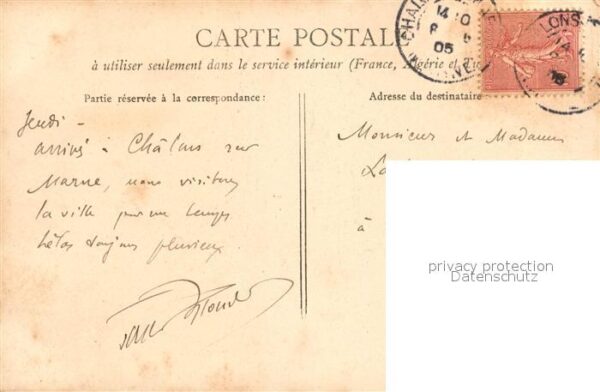 CARTE POSTALE
à utiliser seulement dans le service intérieur (France, Algérie et Tu
Partie réservée à la correspondance:
Adresse du destinataire
Jeudi -
arrivés à Châlons sur
Marne, nous visitons
la ville par un temps
hélas toujours pluvieux.
Monsieur et Madame
La
à
privacy protection
Datenschutz
CHAL
14 10
05
LONS